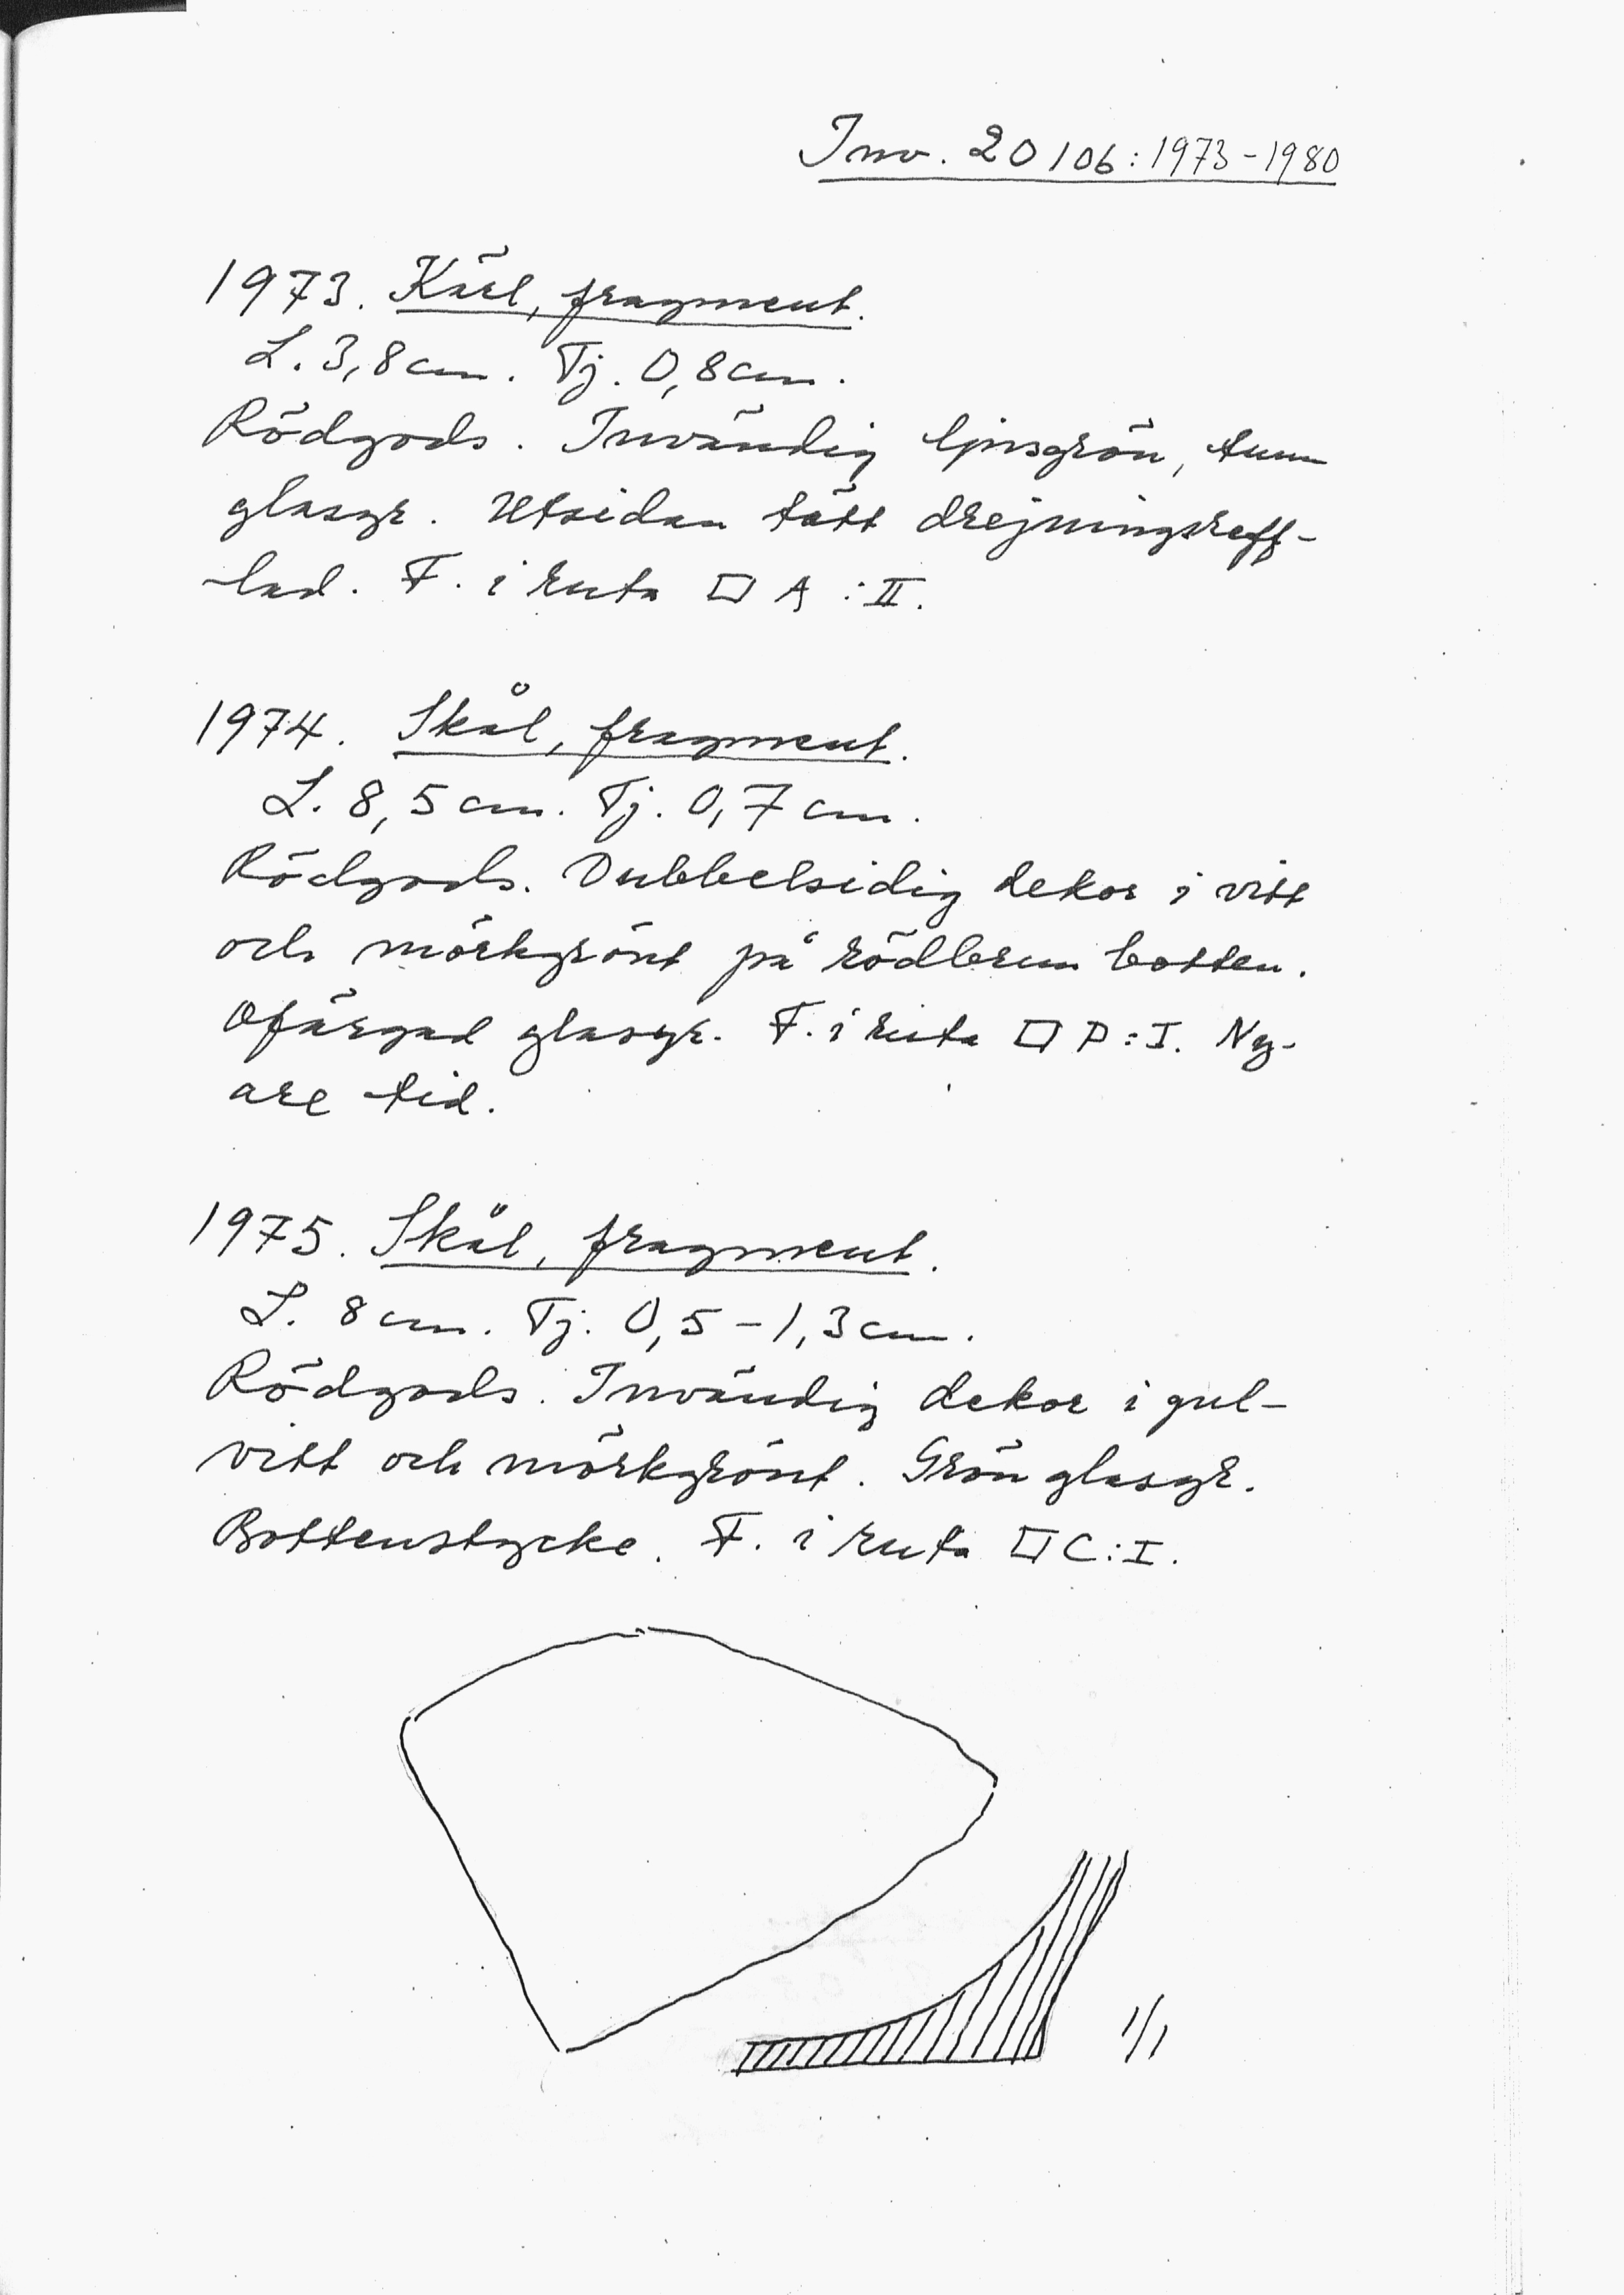 Inv. 20106:1973-1980
1973. Kärl, fragment.
L. 3,8 cm. Tj. 0,8 cm.
Rödgods. Invändig ljusgrön, tunn
glasyr. Utsidan tätt drejningsreff-
lad. F. i ruta □ A:II.
1974. Skål, fragment.
L. 8,5 cm. Tj. 0,7 cm.
Rödgods. Dubbelsidig dekor i vitt
och mörkgrönt på rödbrun botten.
Ofärgad glasyr. F. i ruta □ D:I. Ny-
are tid.
1975. Skål, fragment.
L. 8 cm. Tj. 0,5-1,3 cm.
Rödgods. Invändig dekor i gul-
vitt och mörkgrönt. Grön glasyr.
Bottenstycke. F. i ruta □ C:I.
1/1